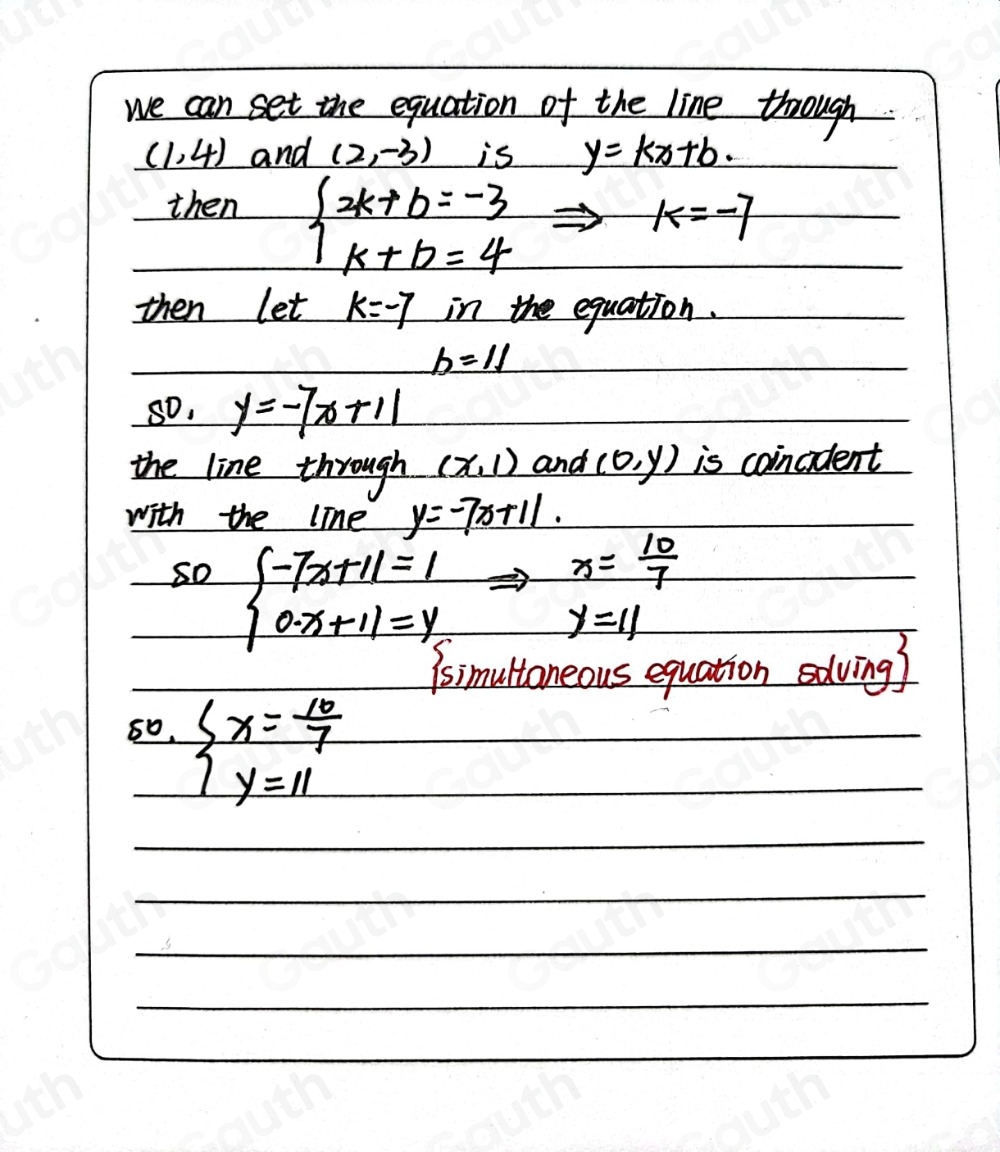 we can set the equation of the line through
(1,4) and (2,-3) is y=kx+b.
then {2k+b=-3 ⇒ k=-7
k+b=4
then let k=-7 in the equation.
b=11
so, y=-7x+11
the line through (x,1) and (0,y) is coincident
with the line y=-7x+11.
so {-7x+11=1 ⇒ x=10/7
0·x+11=y y=11
{simultaneous equation solving}
so, {x=10/7
y=11
Gauth